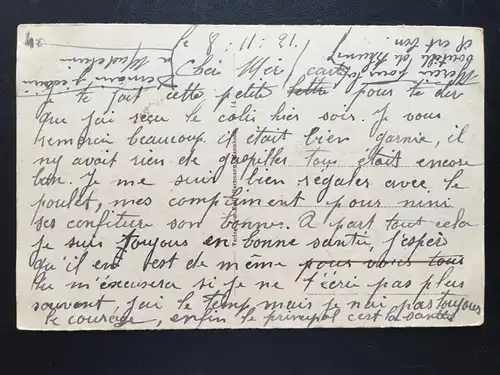 le 8.11.21.
Cher Mér/ carte
Je te fait cette petite lettre pour te dir
que j'ai reçue le colis hier soir. Je vous
remercie beaucoup il était bien garnie, il
ny avait rien de gaspilles tous était encore
bon. Je me suis bien régales avec le
poulet, mes compliment pour nini
ses confiture son bonnes. A part tout cela
je suis toujous en bonne santée, j'esper
qu'il en est de même pour vous tous
tu m'éxcusera si je ne t'écrie pas plus
souvent, j'ai le temp, mais je n'ai pas toujous
le courage, enfin le principal c'est la santé